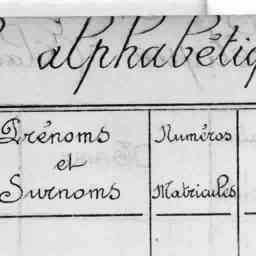 alphabétiq
Prénoms Numéros
et
Surnoms Matricules